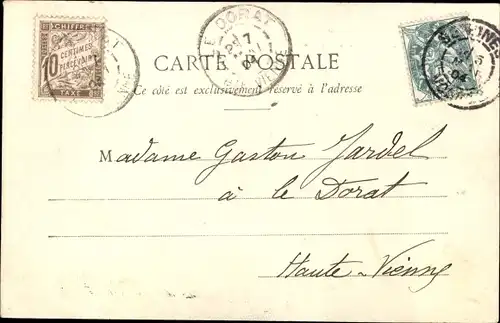 LE DORAT
CARTE POSTALE
Ce côté est exclusivement réservé à l'adresse
CHIFFRE
10
CENTIMES
À PERCEVOIR
TAXE
Madame Gaston Jardel
à le Dorat
Haute-Vienne